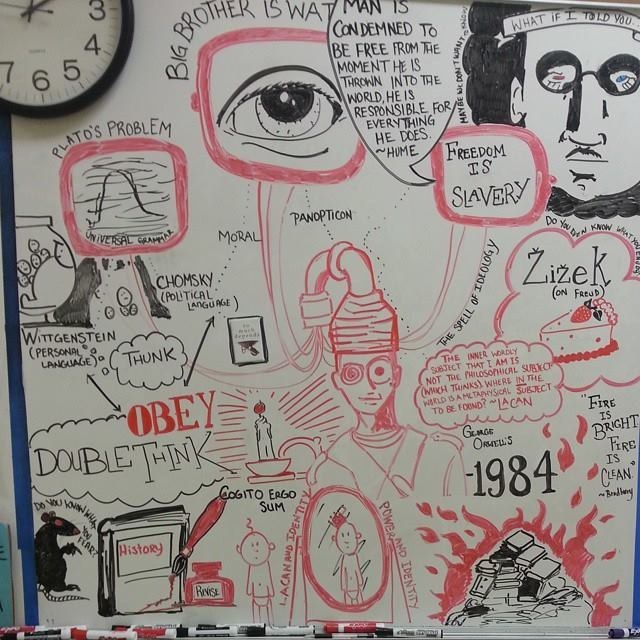 3
4
5
6
7
BIG BROTHER IS WAT
MAN IS
CONDEMNED TO
BE FREE FROM THE
MOMENT HE IS
THROWN INTO THE
WORLD, HE IS
RESPONSIBLE FOR
EVERYTHING
HE DOES.
~HUME
WHAT IF I TOLD YOU
PLATO'S PROBLEM
UNIVERSAL GRAMMAR
FREEDOM
IS
SLAVERY
MORAL
PANOPTICON
CHOMSKY
(POLITICAL
LANGUAGE)
WITTGENSTEIN
(PERSONAL
LANGUAGE)
THUNK
so
much
depends
THE SPELL OF IDEOLOGY
DO YOU EVEN KNOW WHAT
ŽIŽEK
(ON FREUD)
THE INNER WORDLY
SUBJECT THAT I AM IS
NOT THE PHILOSOPHICAL SUBJECT
(WHICH THINKS). WHERE IN THE
WORLD IS A METAPHYSICAL SUBJECT
TO BE FOUND? ~LACAN
OBEY
DOUBLETHINK
GEORGE
ORWELL'S
1984
"FIRE
IS
BRIGHT
FIRE
IS
CLEAN."
~Bradbury
COGITO ERGO
SUM
DO YOU KNOW WHAT
YOU FEAR?
History
REVISE
LACAN AND IDENTITY
POWER AND IDENTITY